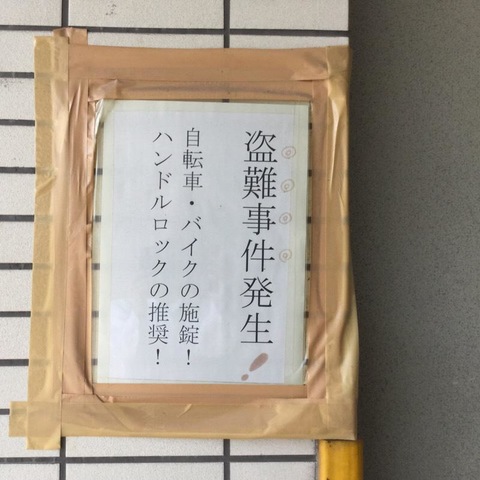 盗難事件発生！
自転車・バイクの施錠！
ハンドルロックの推奨！